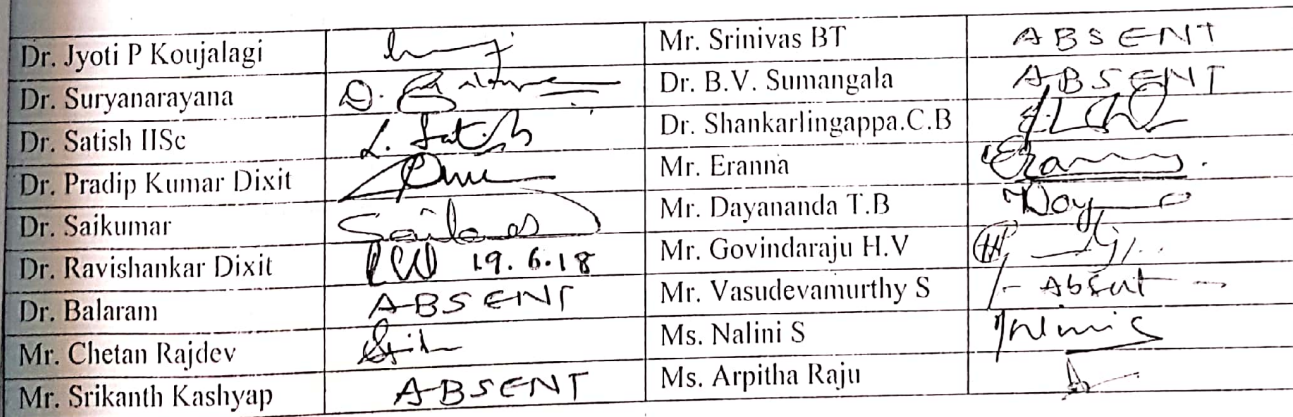 Dr. Jyoti P Koujalagi Mr. Srinivas BT ABSENT
Dr. Suryanarayana Dr. B.V. Sumangala ABSENT
Dr. Satish IISc L. Satish Dr. Shankarlingappa.C.B
Dr. Pradip Kumar Dixit Mr. Eranna Eranna
Dr. Saikumar Mr. Dayananda T.B
Dr. Ravishankar Dixit 19.6.18 Mr. Govindaraju H.V
Dr. Balaram ABSENT Mr. Vasudevamurthy S - Absent -
Mr. Chetan Rajdev Ms. Nalini S
Mr. Srikanth Kashyap ABSENT Ms. Arpitha Raju